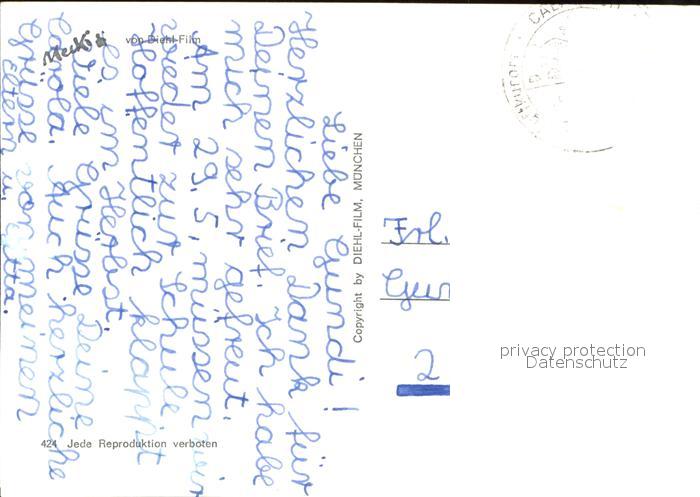 Mecki von Diehl-Film
Liebe Gundi!
Herzlichen Dank für
Deinen Brief. Ich habe
mich sehr gefreut.
Am 29.5. müssen wir
wieder zur Schule
Hoffentlich klappt
es im Herbst.
Viele Grüsse Deine
Carola. Auch herzliche
Grüsse von meinen
Eltern u. Jutta.
Copyright by DIEHL-FILM, MÜNCHEN
Frl.
2
privacy protection
Datenschutz
424 Jede Reproduktion verboten